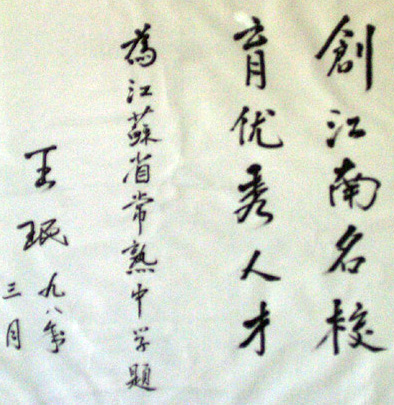 創江南名校
育优秀人才
為江蘇省常熟中学題
王珉
九八年
三月